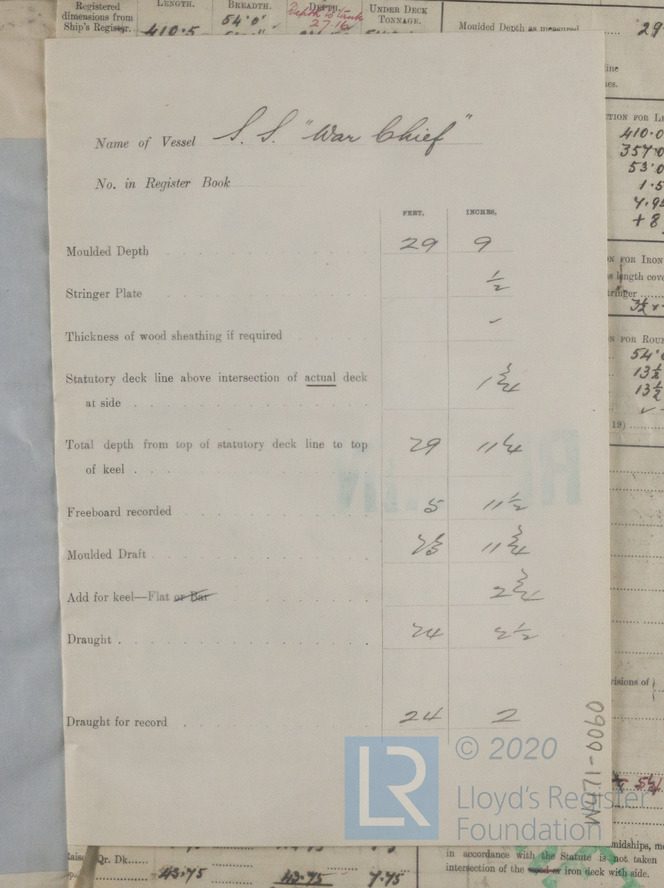 Registered
dimensions from
Ship's Register.
LENGTH. BREADTH. DEPTH. UNDER DECK
TONNAGE.
Depth to Tank
27.16
410.5 54'0"
Moulded Depth as measured 29
S. S. "War Chief"
Name of Vessel
No. in Register Book
FEET. INCHES.
Moulded Depth 29 9
Stringer Plate ½
Thickness of wood sheathing if required ✓
Statutory deck line above intersection of actual deck 1¾
at side
Total depth from top of statutory deck line to top 29 11¼
of keel
Freeboard recorded 5 11½
Moulded Draft 23 11¾
Add for keel—Flat or Bar 2¾
Draught 24 2½
Draught for record 24 2
TION FOR
410.0
357.0
53'0
1.5
4.95
+ 8
FOR IRON
length cove
FOR ROU
54'0
13½
13½
✓
19)
W171-0060
© 2020
LR
Lloyd's Register
Foundation
Qr. Dk.
43.75 43.75 7.75
midships, m
in accordance with the Statute is not taken
intersection of the wood or iron deck with side.